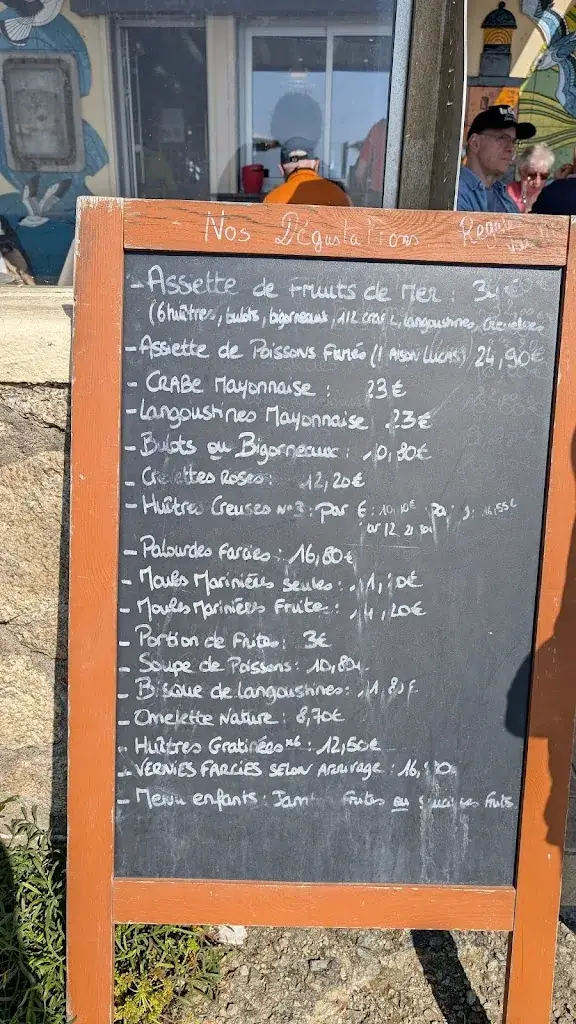 Nos Dégustations
- Assette de Fruits de Mer : 3 €
(6 huîtres, bulots, bigorneaux, 1/2 crabe, langoustines, crevettes
- Assiette de Poissons Fumés (MAISON LUCAS) 24,90€
- CRABE Mayonnaise : 23€
- Langoustines Mayonnaise 23€
- Bulots ou Bigorneaux : 10,80€
- Crevettes Roses : 12,20€
- Huîtres Creuses N°3 : par 6 : 10,10€ par 9 : 16,55€
par 12
- Palourdes Farcies : 16,80€
- Moules Marinières Seules :
- Moules Marinières Frites : 14,20€
- Portion de Frites : 3€
- Soupe de Poissons : 10,80€
- Bisque de Langoustines : 11,80€
- Omelette Nature : 8,70€
- Huîtres Gratinées x6 : 12,50€
- VERNIES FARCIES SELON ARRIVAGE : 16,
- Menu enfants : Jambon Frites ou Saucisses Frites